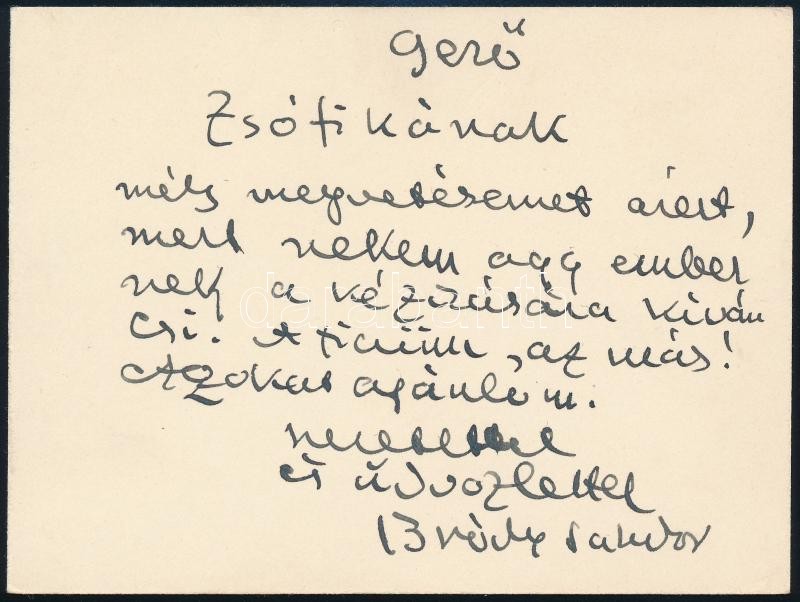 Gerő
Zsófikának
mély megvetésemet azért,
mert nekem agg ember
nek a kézirására kiván
csi. A fiaiim, az más!
Azokat ajánlom.
szeretettel
és üdvözlettel
Bródy Sándor
darabanth